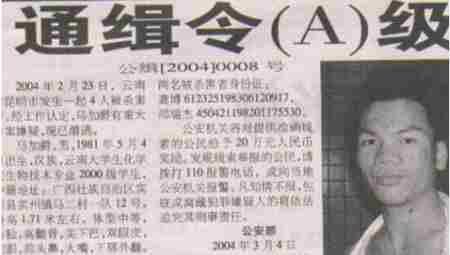 通缉令(A)级
公缉[2004]0008 号
2004 年 2 月 23 日,云南
昆明市发生一起 4 人被杀害
,经工作认定,马加爵有重大
案嫌疑,现已潜逃。
马加爵,男,1981 年 5 月 4
出生,汉族,云南大学生化学
生物技术专业 2000 级学生,
籍地址:广西壮族自治区宾
县宾州镇马二村一队 12 号,
高 1.71 米左右,体型中等,
脸,高颧骨,尖下巴,双眼皮,
眼,蒜头鼻,大嘴,下唇外翻,
两名被杀害者身份证:
龚博 612325198306120917,
邵瑞杰 450421198201175530,
公安机关将对提供准确线
索的公民给予 20 万元人民币
奖励,发现线索举报的公民,请
拨打 110 报警电话,或向当地
公安机关报警。凡知情不报,包
庇或窝藏犯罪嫌疑人的将依法
追究其刑事责任。
公安部
2004 年 3 月 4 日